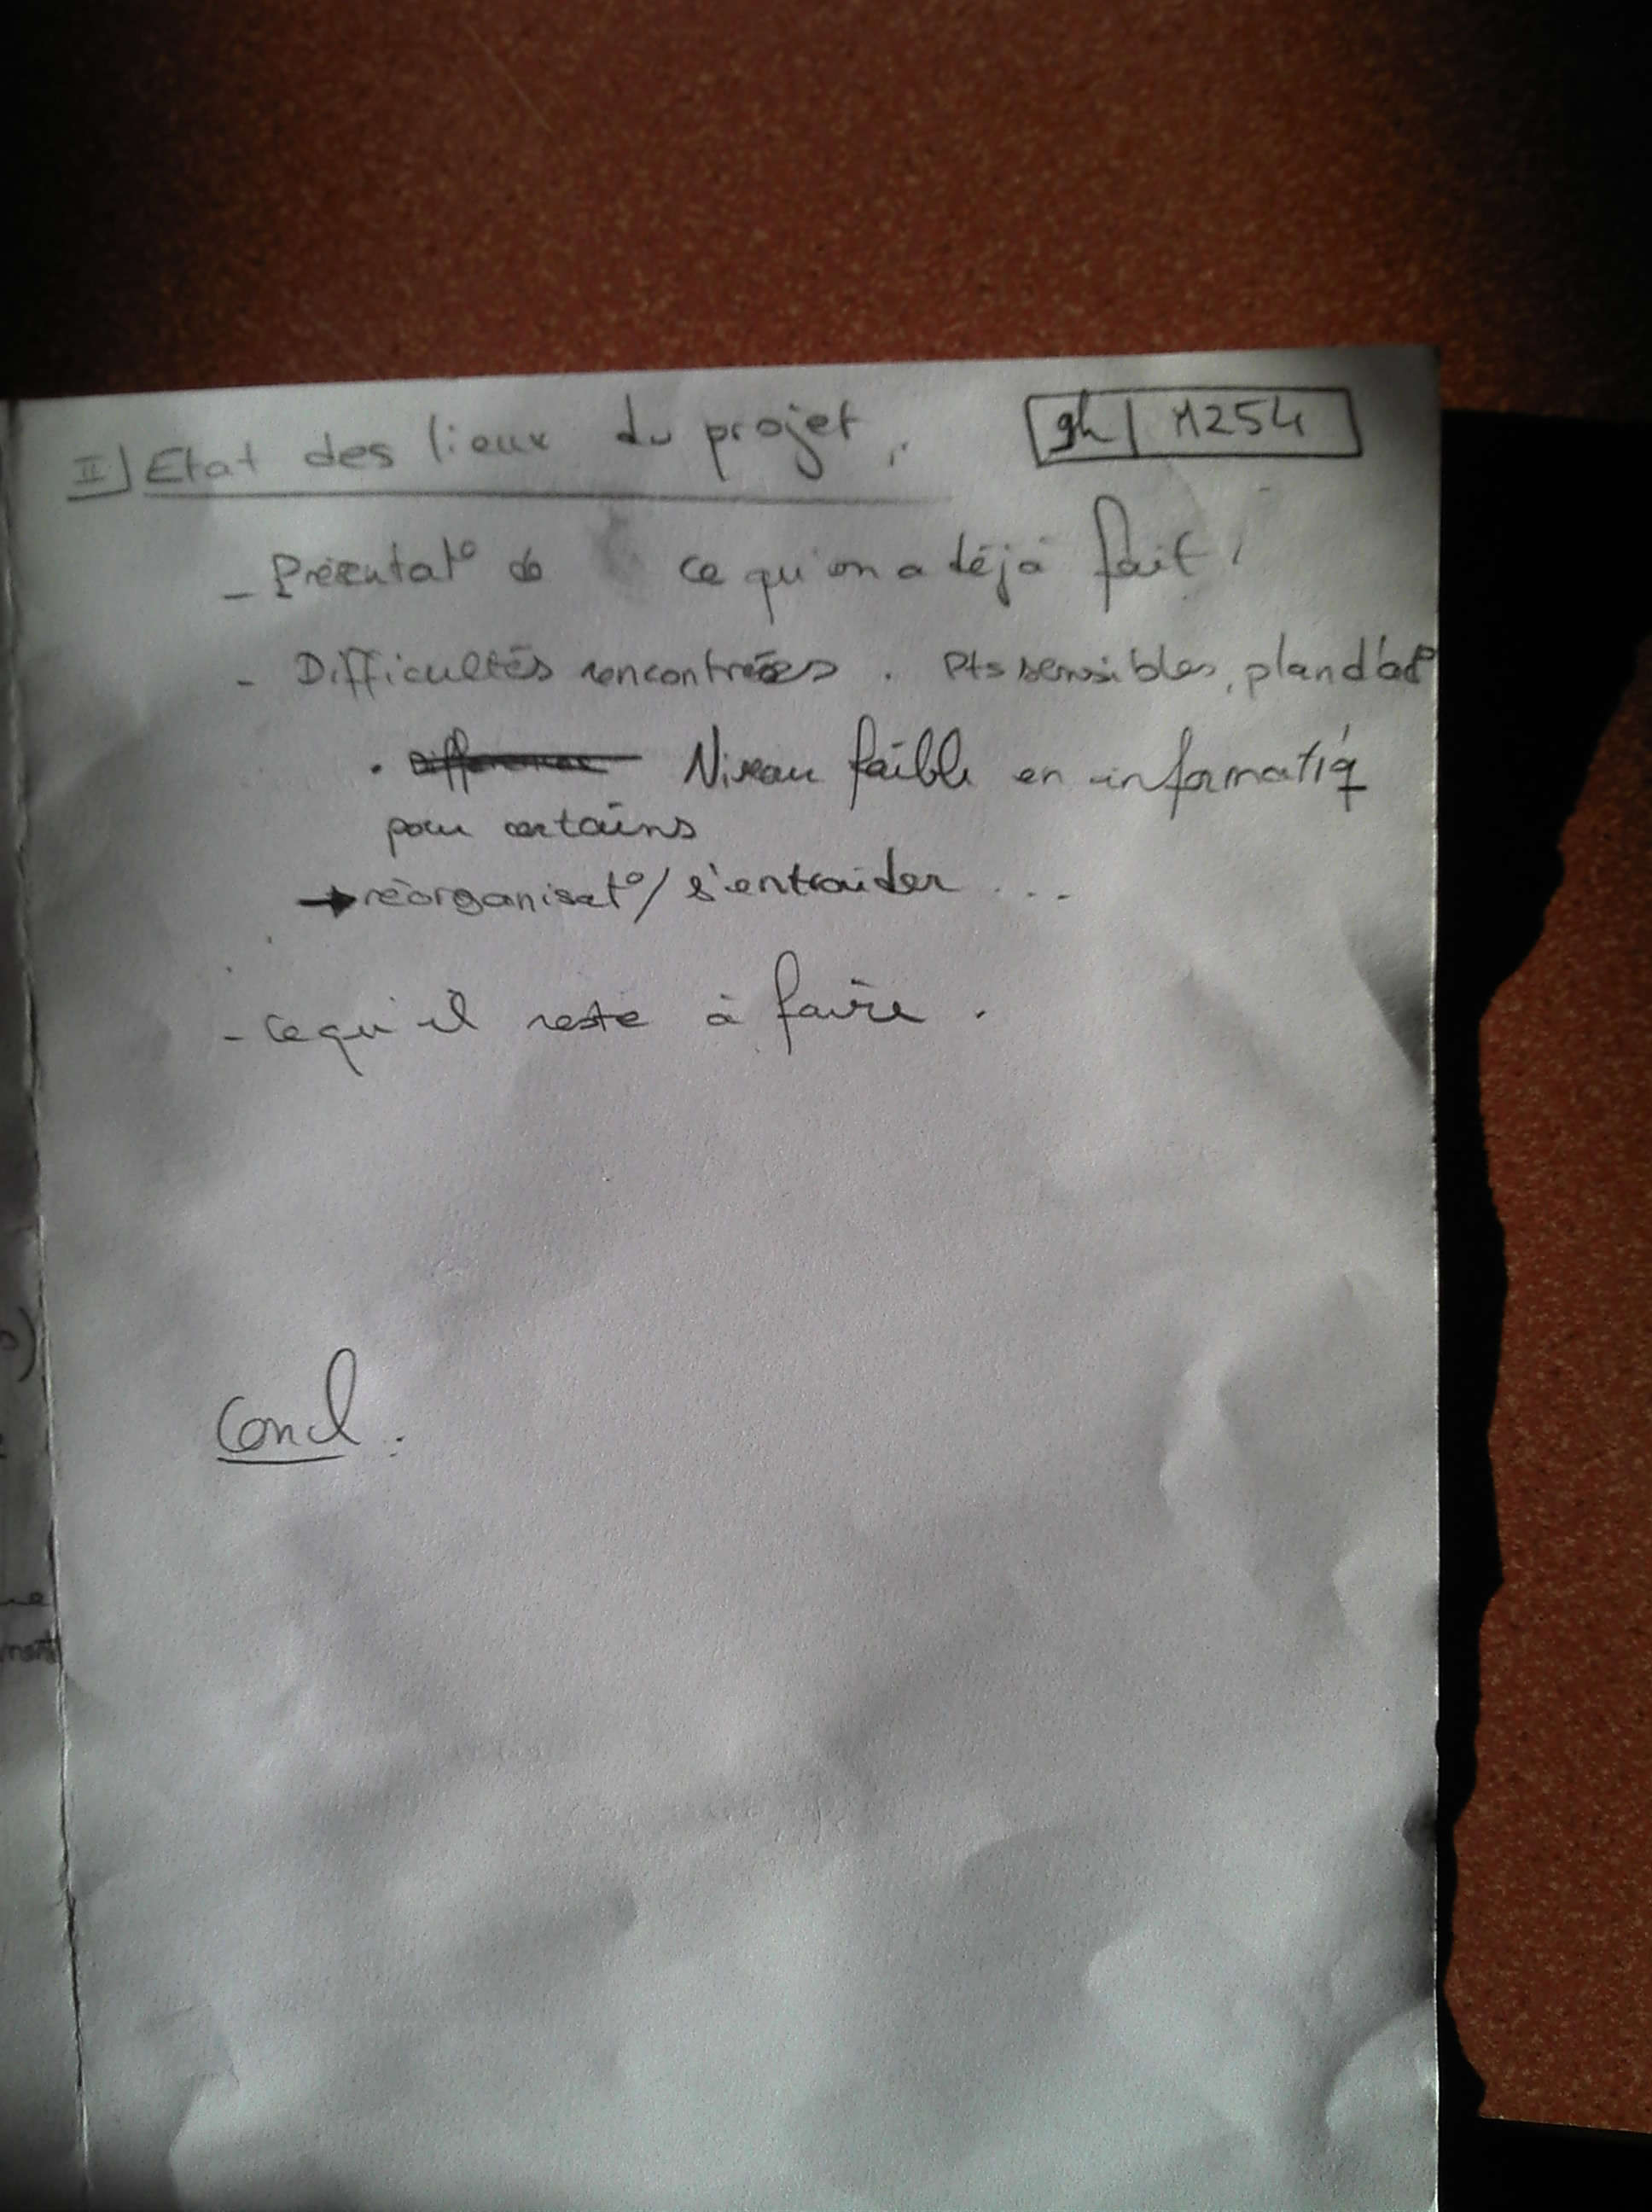 II] Etat des lieux du projet.
9h | M254
- Présentat° de ce qu'on a déjà fait.
- Difficultés rencontrées. Pts sensibles, plan d'act°
. Niveau faible en informatiq
pour certains
→ réorganisat° / s'entraider ...
- ce qu'il reste à faire.
Concl :